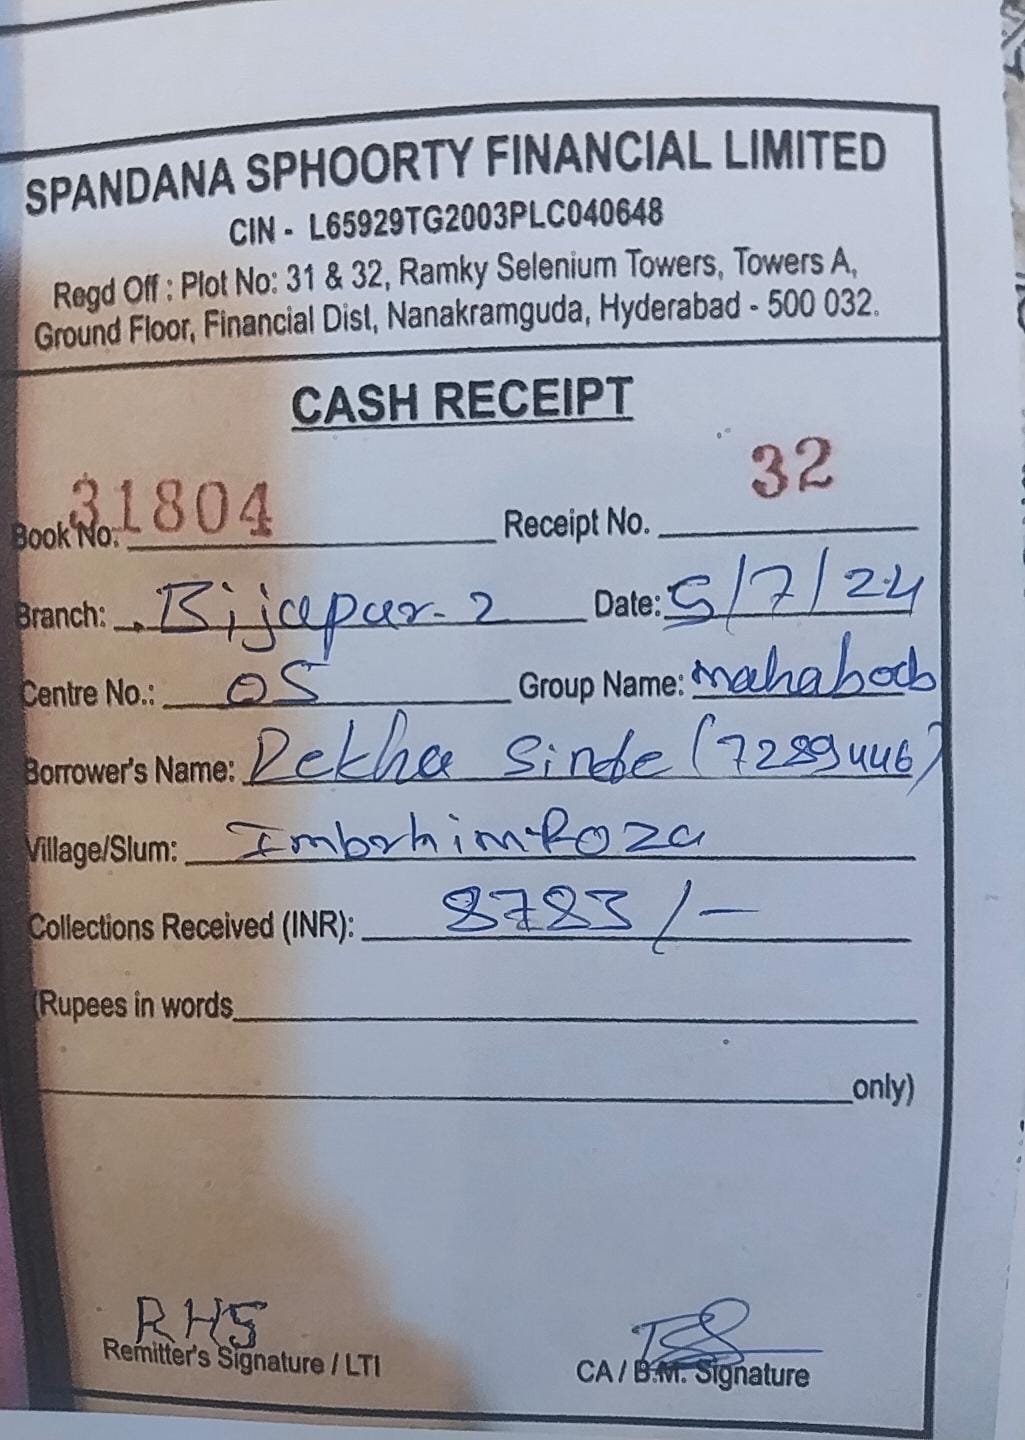 SPANDANA SPHOORTY FINANCIAL LIMITED
CIN - L65929TG2003PLC040648
Regd Off : Plot No: 31 & 32, Ramky Selenium Towers, Towers A,
Ground Floor, Financial Dist, Nanakramguda, Hyderabad - 500 032.
CASH RECEIPT
Book No. 31804 Receipt No. 32
Branch: Bijapur-2 Date: 5/7/24
Centre No.: 05 Group Name: mahaboob
Borrower's Name: Rekha Sinde (7289446)
Village/Slum:
Collections Received (INR): 8783/-
(Rupees in words
only)
RHS
Remitter's Signature / LTI
CA / B.M. Signature